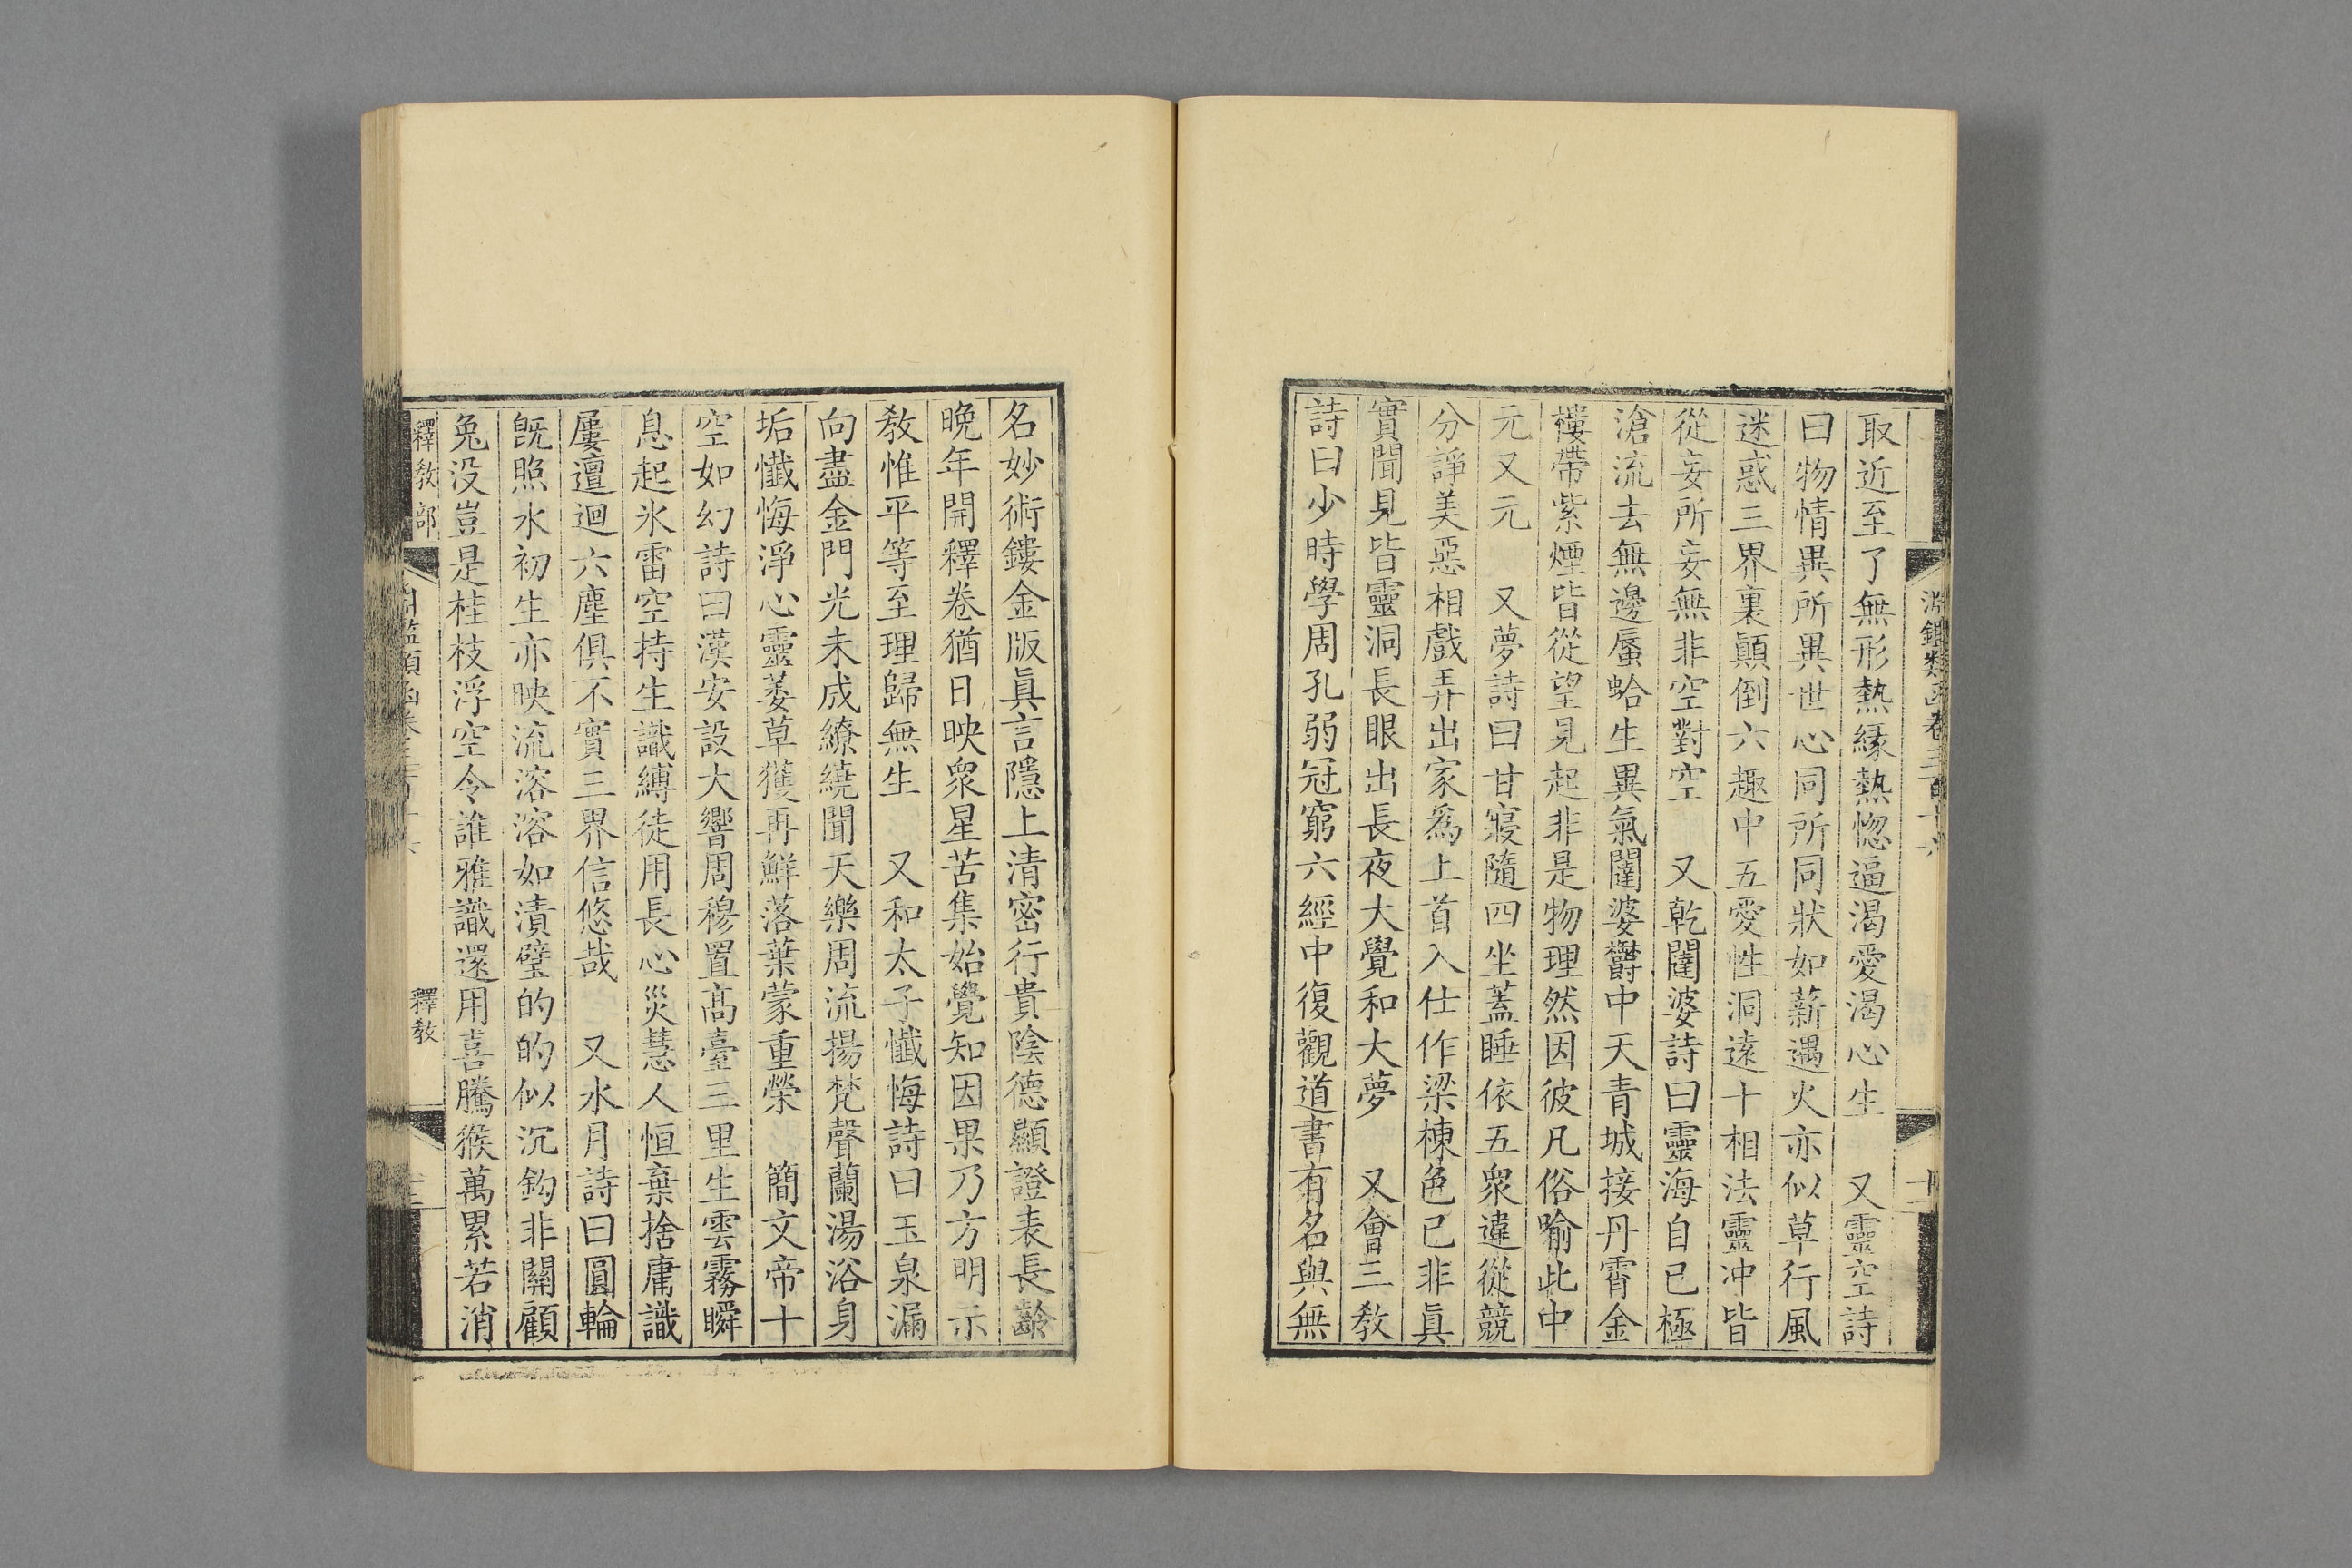 取近至了無形熱緣熱惚逼渴愛渴心生　又靈空詩
曰物情異所異世心同所同狀如薪遇火亦似草行風
迷惑三界裏顛倒六趣中五愛性洞遠十相法靈冲皆
從妄所妄無非空對空　又乾闥婆詩曰靈海自已極
滄流去無邊蜃蛤生異氣闥婆欝中天青城接丹霄金
樓帶紫煙皆從望見起非是物理然因彼凡俗喻此中
元又元　又夢詩曰甘寢隨四坐蓋睡依五衆違從競
分諍美惡相戲弄出家爲上首入仕作梁棟色已非眞
實聞見皆靈洞長眼出長夜大覺和大夢　又會三教
詩曰少時學周孔弱冠窮六經中復觀道書有名與無
名妙術鏤金版眞言隱上清密行貴陰德顯證表長齡
晩年開釋卷猶日映衆星苦集始覺知因果乃方明示
教惟平等至理歸無生　又和太子懺悔詩曰玉泉漏
向盡金門光未成繚繞聞天樂周流揚梵聲蘭湯浴身
垢懺悔淨心靈萎草獲再鮮落葉蒙重榮　簡文帝十
空如幻詩曰漢安設大響周穆置高臺三里生雲霧瞬
息起氷雷空持生識縛徒用長心災慧人恒棄捨庸識
屢邅迴六塵俱不實三界信悠哉　又水月詩曰圓輪
既照水初生亦映流溶溶如漬璧的的似沉鈎非關顧
兔没豈是桂枝浮空令誰雅識還用喜騰猴萬累若消
釋教部
釋教